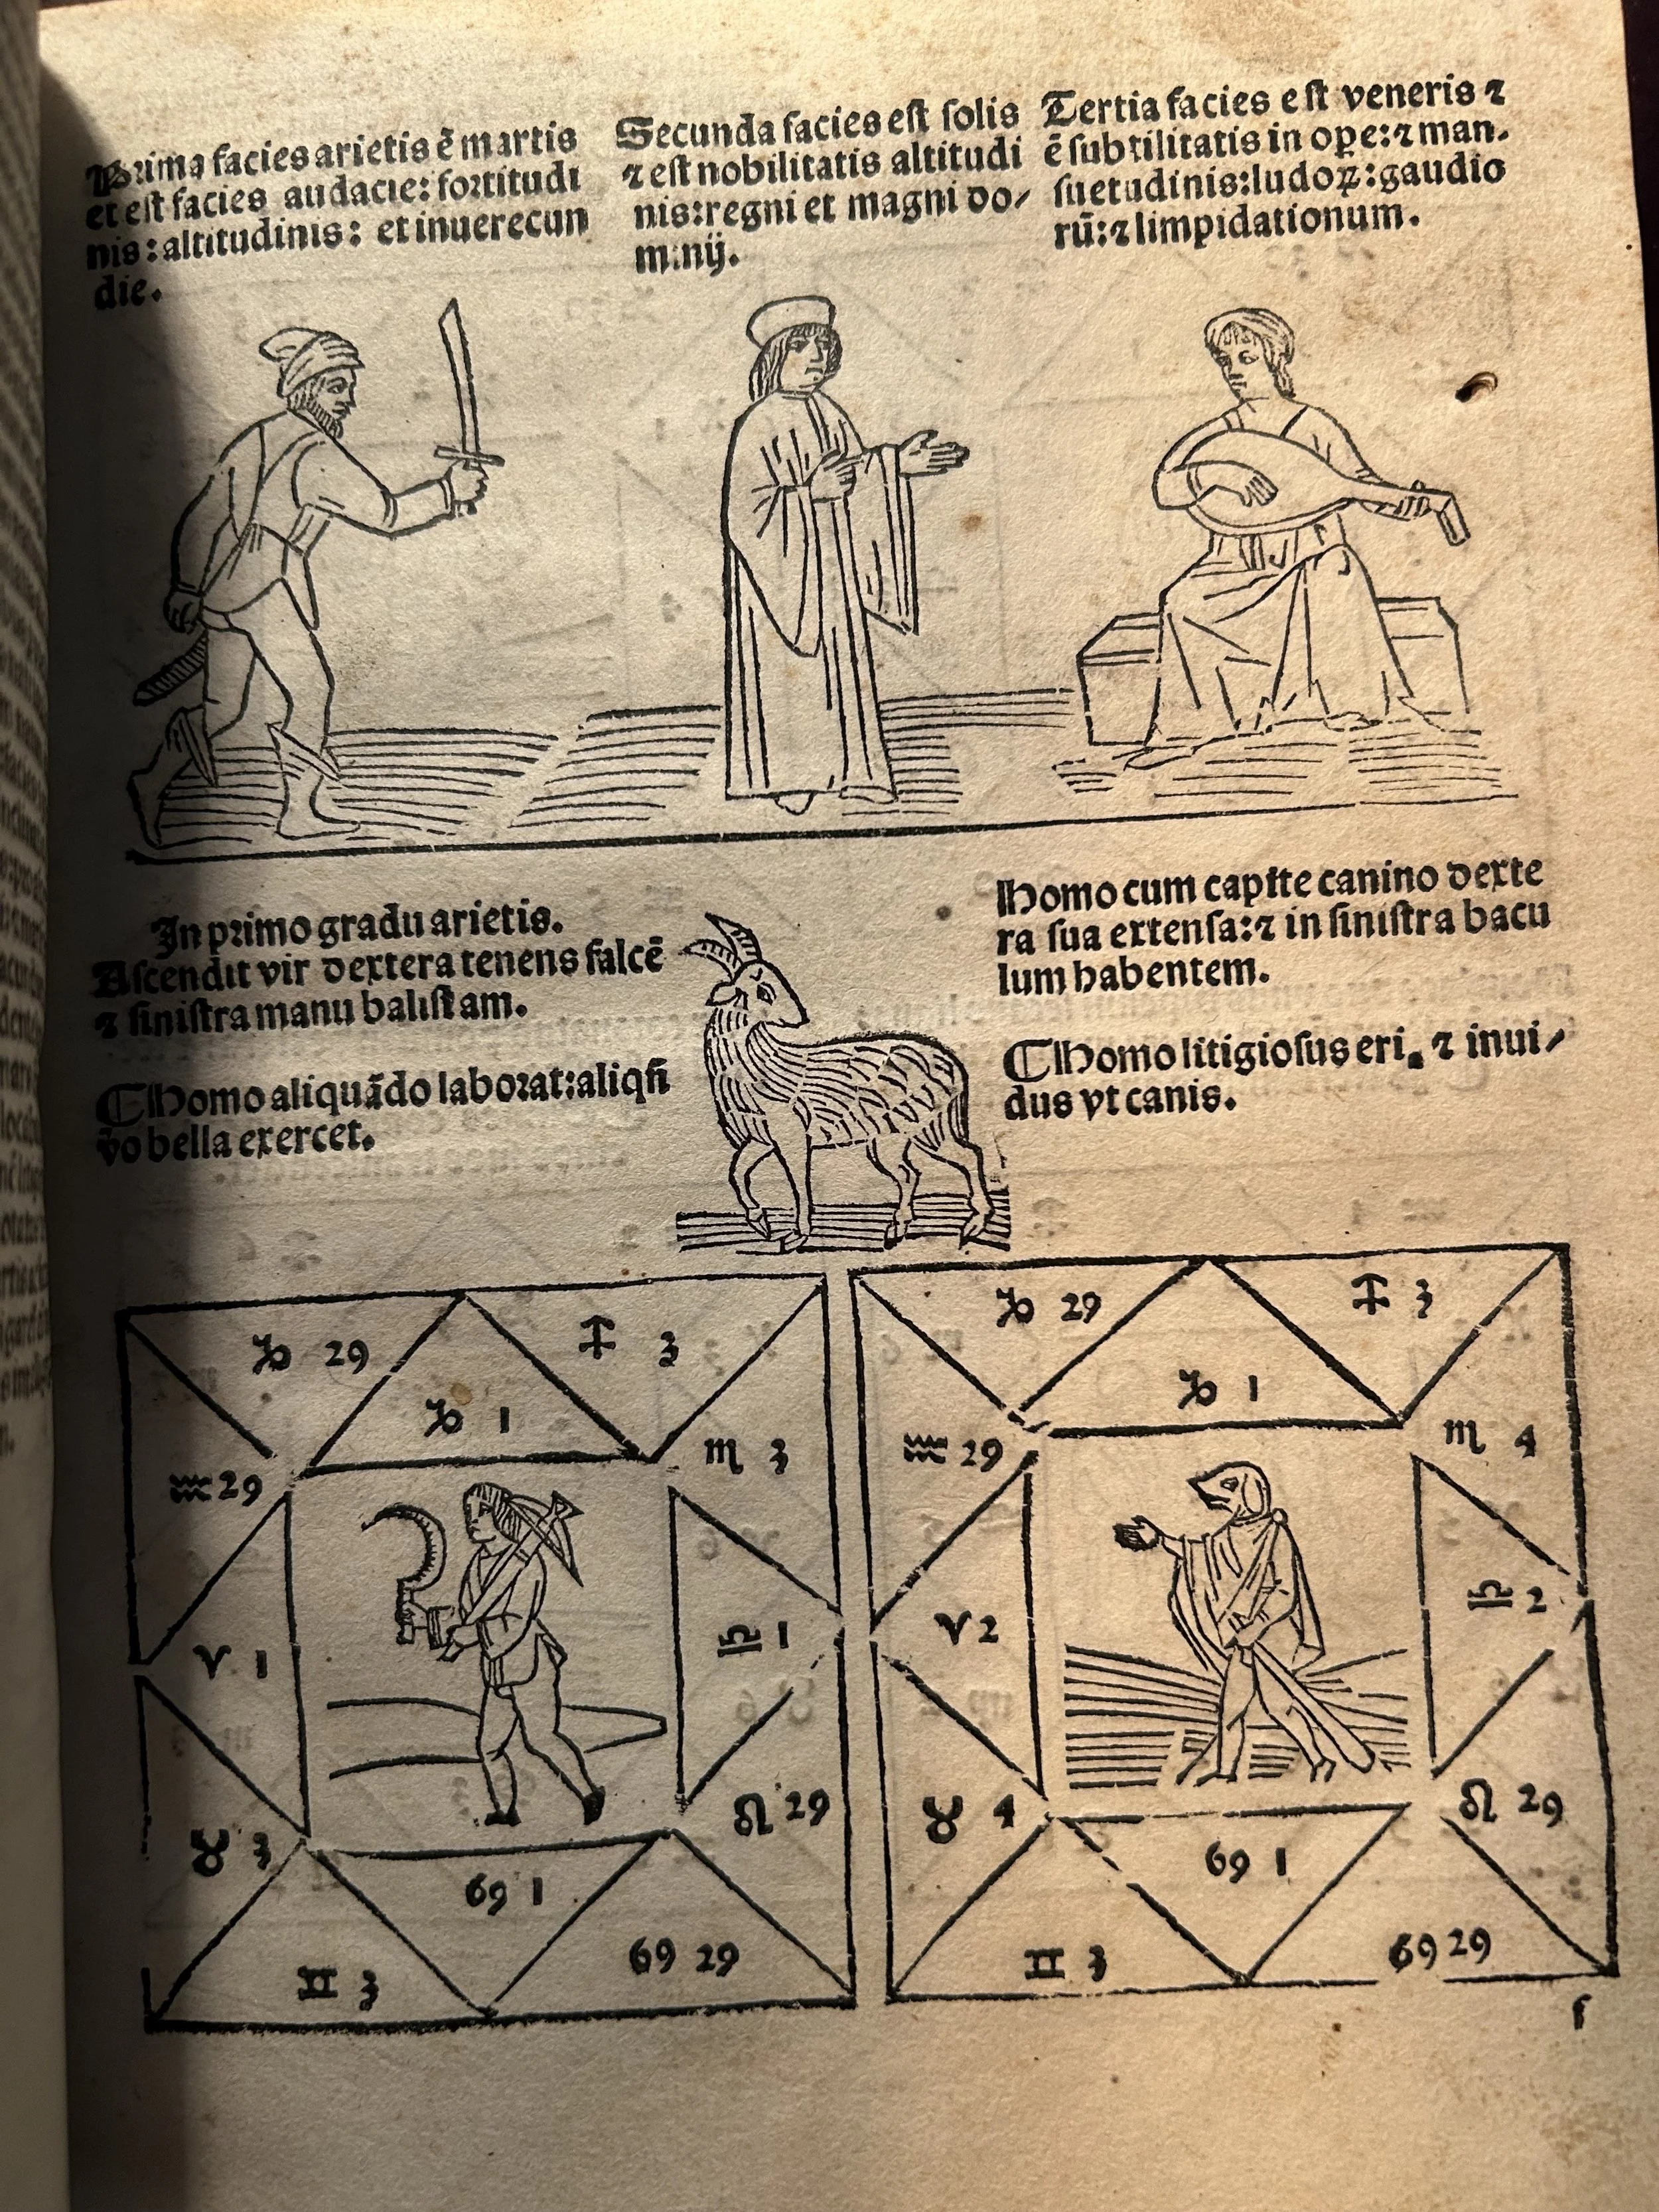 Prima facies arietis ē martis
et est facies audacie: fortitudi
nis: altitudinis: et inuerecun
die.
Secunda facies est solis
⁊ est nobilitatis altitudi
nis: regni et magni do/
minij.
Tertia facies est veneris ⁊
ē subtilitatis in oꝑe: ⁊ man-
suetudinis: ludoꝝ: gaudio
rū: ⁊ limpidationum.
In primo gradu arietis.
Ascendit vir dextera tenens falcē
⁊ sinistra manu balistam.
¶ Homo aliquādo laborat: aliqñ
vo bella exercet.
Homo cum capite canino dexte
ra sua extensa: ⁊ in sinistra bacu
lum habentem.
¶ Homo litigiosus eri. ⁊ inui/
dus vt canis.
♑ 29
♐ 3
♑ 1
♏ 3
♒ 29
♈ 1
♎ 1
♉ 3
♌ 29
♋ 1
♊ 3
♋ 29
♑ 29
♐ 3
♑ 1
♏ 4
♒ 29
♈ 2
♎ 2
♉ 4
♌ 29
♋ 1
♊ 3
♋ 29